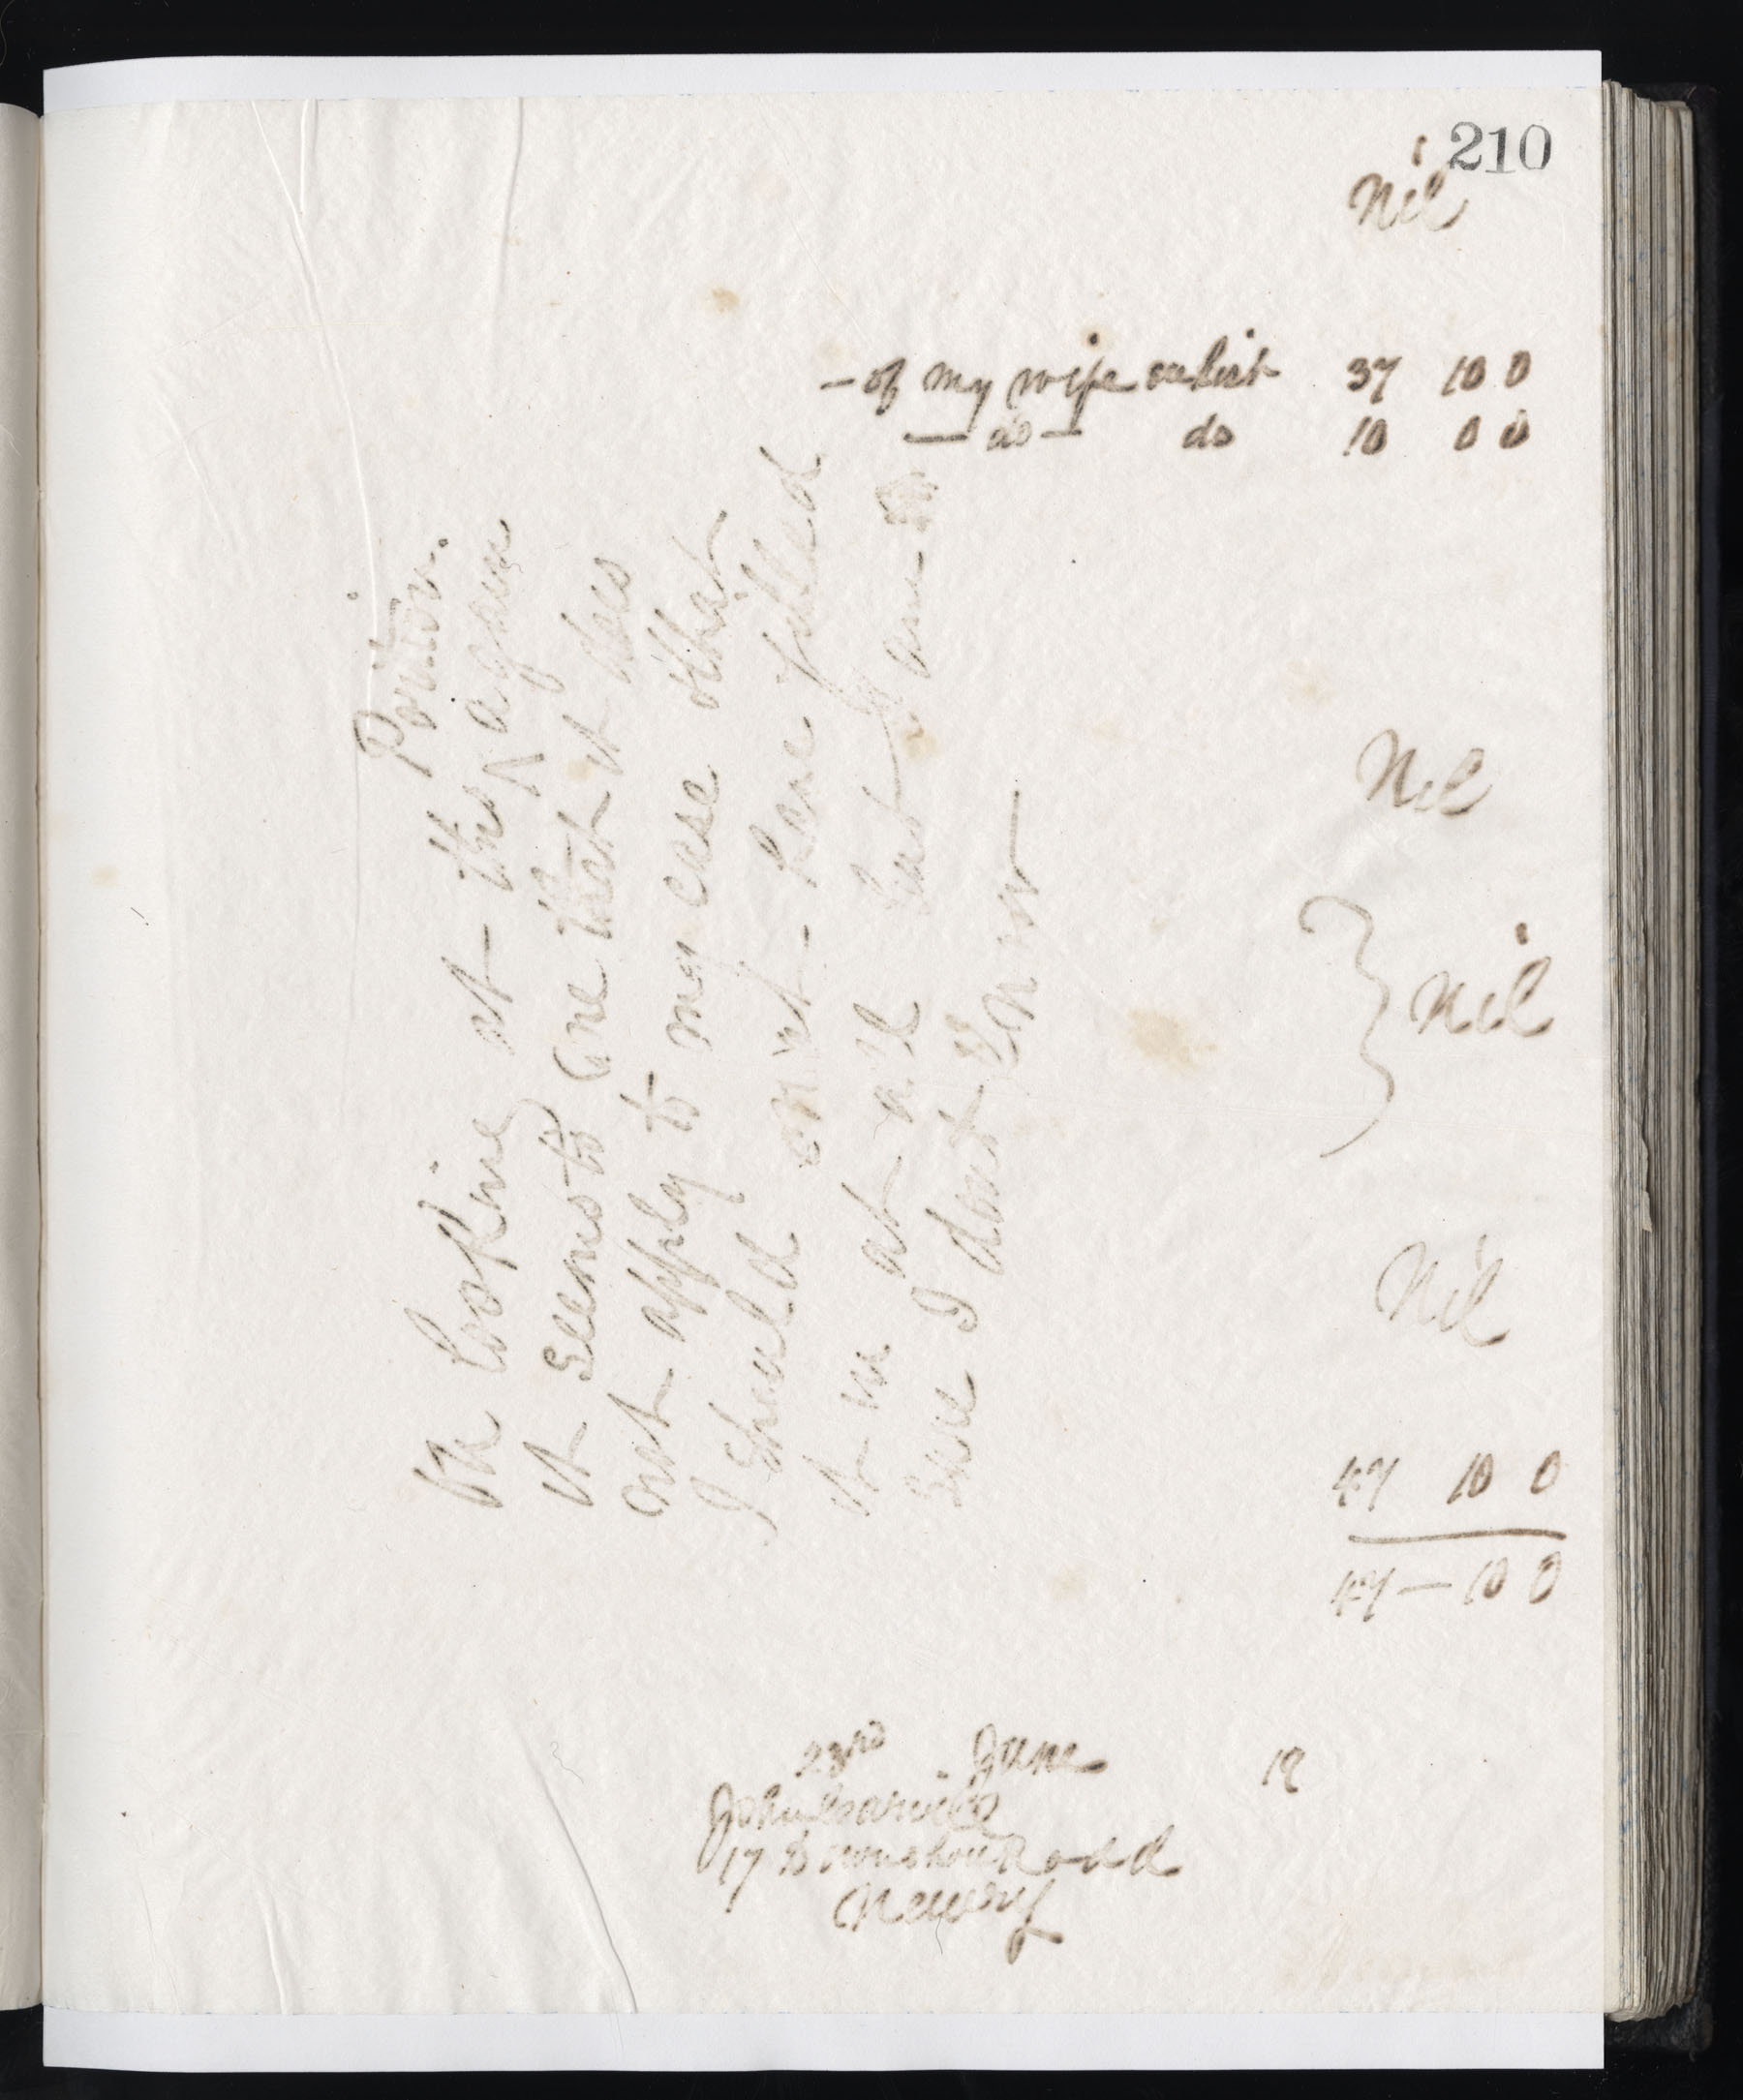 210
Nil
- of my wife on list 37 10 0
— do — do 10 0 0
Portion.
On looking at this ^ again
it seems to me that it does
not apply to my case & that
I should not have filled
it in at all but I am not
sure I dont know
Nil
Nil
Nil
47 10 0
47 — 10 0
23rd June 19
John
17 Road
Newry